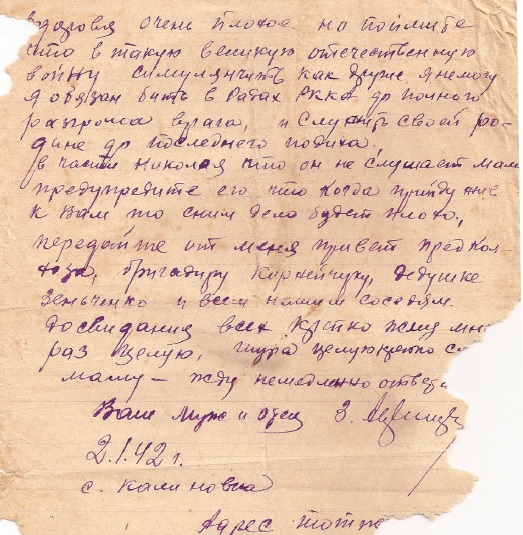 здоровя очень плохое но поймите
что в такую великую отечественную
войну симулянчить как другие я немогу
я обязан бить в Радах РККА до полного
разгрома врага, и служить своей ро-
дине до последнего
в части Николая что он не слушает мам
предупредите его что когда прийду
к Вам то сним дело будет плохо,
передайте от меня привет предкол-
хоза, бригадиру Корнейчуку, дедушке
Зеньченко и всем нашим соседям.
досвидания всех крепко жму
раз целую, шура целую крепко
маму — жду немедленно ответа
Ваш муж и отец З.
2.1.42 г.
с. Калиновка
Адрес